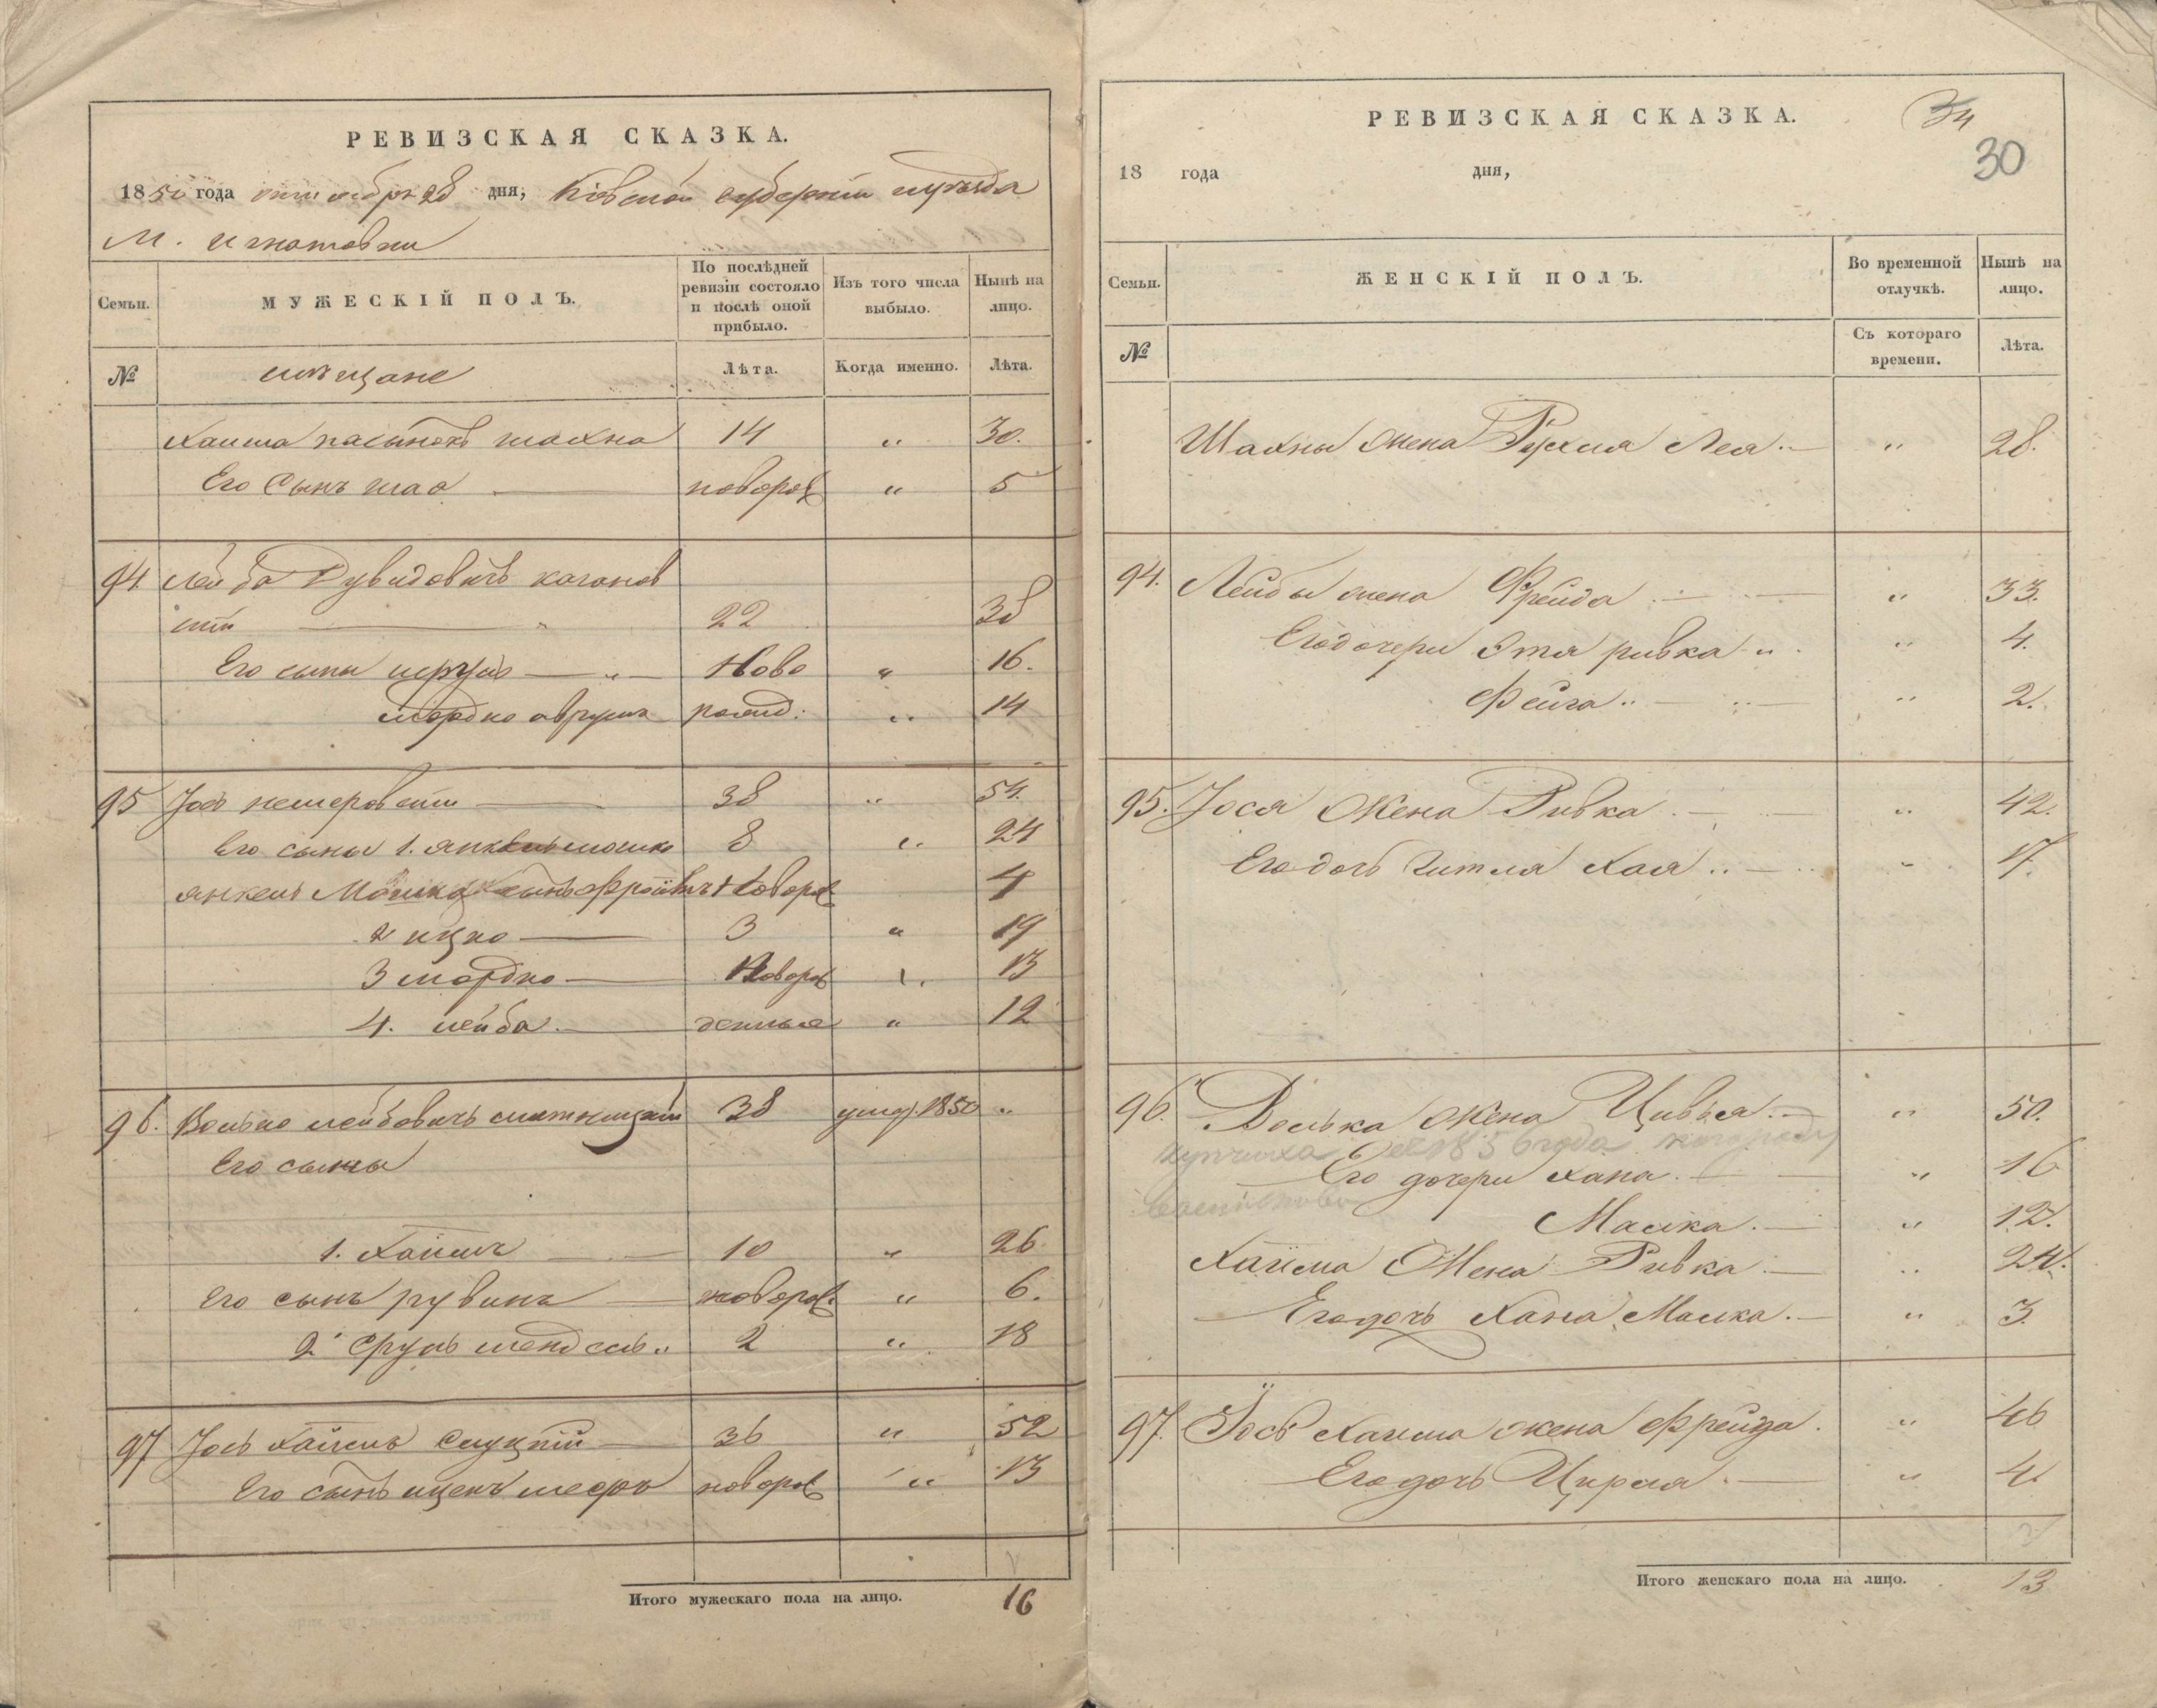 РЕВИЗСКАЯ СКАЗКА.
1850 года октября 28 дня, Кіевской губерніи уѣзда
М. Игнатовки
Семьи.
МУЖЕСКІЙ ПОЛЪ.
По послѣдней ревизіи состояло и послѣ оной прибыло.
Изъ того числа выбыло.
Нынѣ на лицо.
№
мѣщане
Лѣта.
Когда именно.
Лѣта.
Хаима пасынокъ шахна 14 " 30.
Его Сынъ новорож " 5
94 Лейба Дувидовичъ каганов
скій 22 38
Его сыны Ново " 16.
мордко аврумъ рожд: " 14
95 Іось 38 " 54.
Его сыны 1. янкель мошко 8 " 24
янкель Мошка сынъ новорож 4
2 ицко 3 " 19
3 мордко Новорож " 13
4. лейба. денные " 12
96. Волько лейбовичъ 38 умер. 1850 "
Его сыны
1. Хаимъ 10 " 26.
Его сынъ рувинъ новорож. " 6.
2 Сруль мендель 2 " 18
97 Іось Хаимъ Слуцкій 36 " 52
Его сынъ ицекъ меєръ новорож " 13
Итого мужескаго пола на лицо. 16
РЕВИЗСКАЯ СКАЗКА.
34
30
18 года дня,
Семьи.
ЖЕНСКІЙ ПОЛЪ.
Во временной отлучкѣ.
Нынѣ на лицо.
№
Съ котораго времени.
Лѣта.
Шахны жена Рухля Лея " 28.
94. Лейбы жена Фрейда " 33.
Его дочери Этя ривка " 4.
Фейга " 2.
95. Іося Жена Ривка " 42.
Его дочь Гитля Хая " 17.
96. Волька Жена Цивья " 50.
купчиха 1856 года
Его дочери хана " 16
Малка " 12.
Хаима Жена Ривка " 24.
Его дочь Хана Малка " 3.
97. Іось Хаима жена Фрейда " 46
Его дочь Цирля " 4.
Итого женскаго пола на лицо. 13